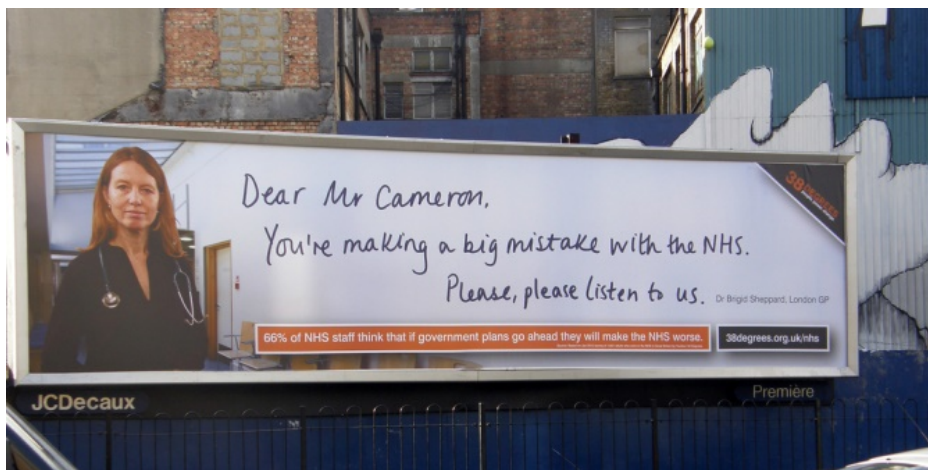 Dear Mr Cameron,
You're making a big mistake with the NHS.
Please, please listen to us.
Dr Brigid Sheppard, London GP
38 DEGREES
66% of NHS staff think that if government plans go ahead they will make the NHS worse.
38degrees.org.uk/nhs
JCDecaux
Première